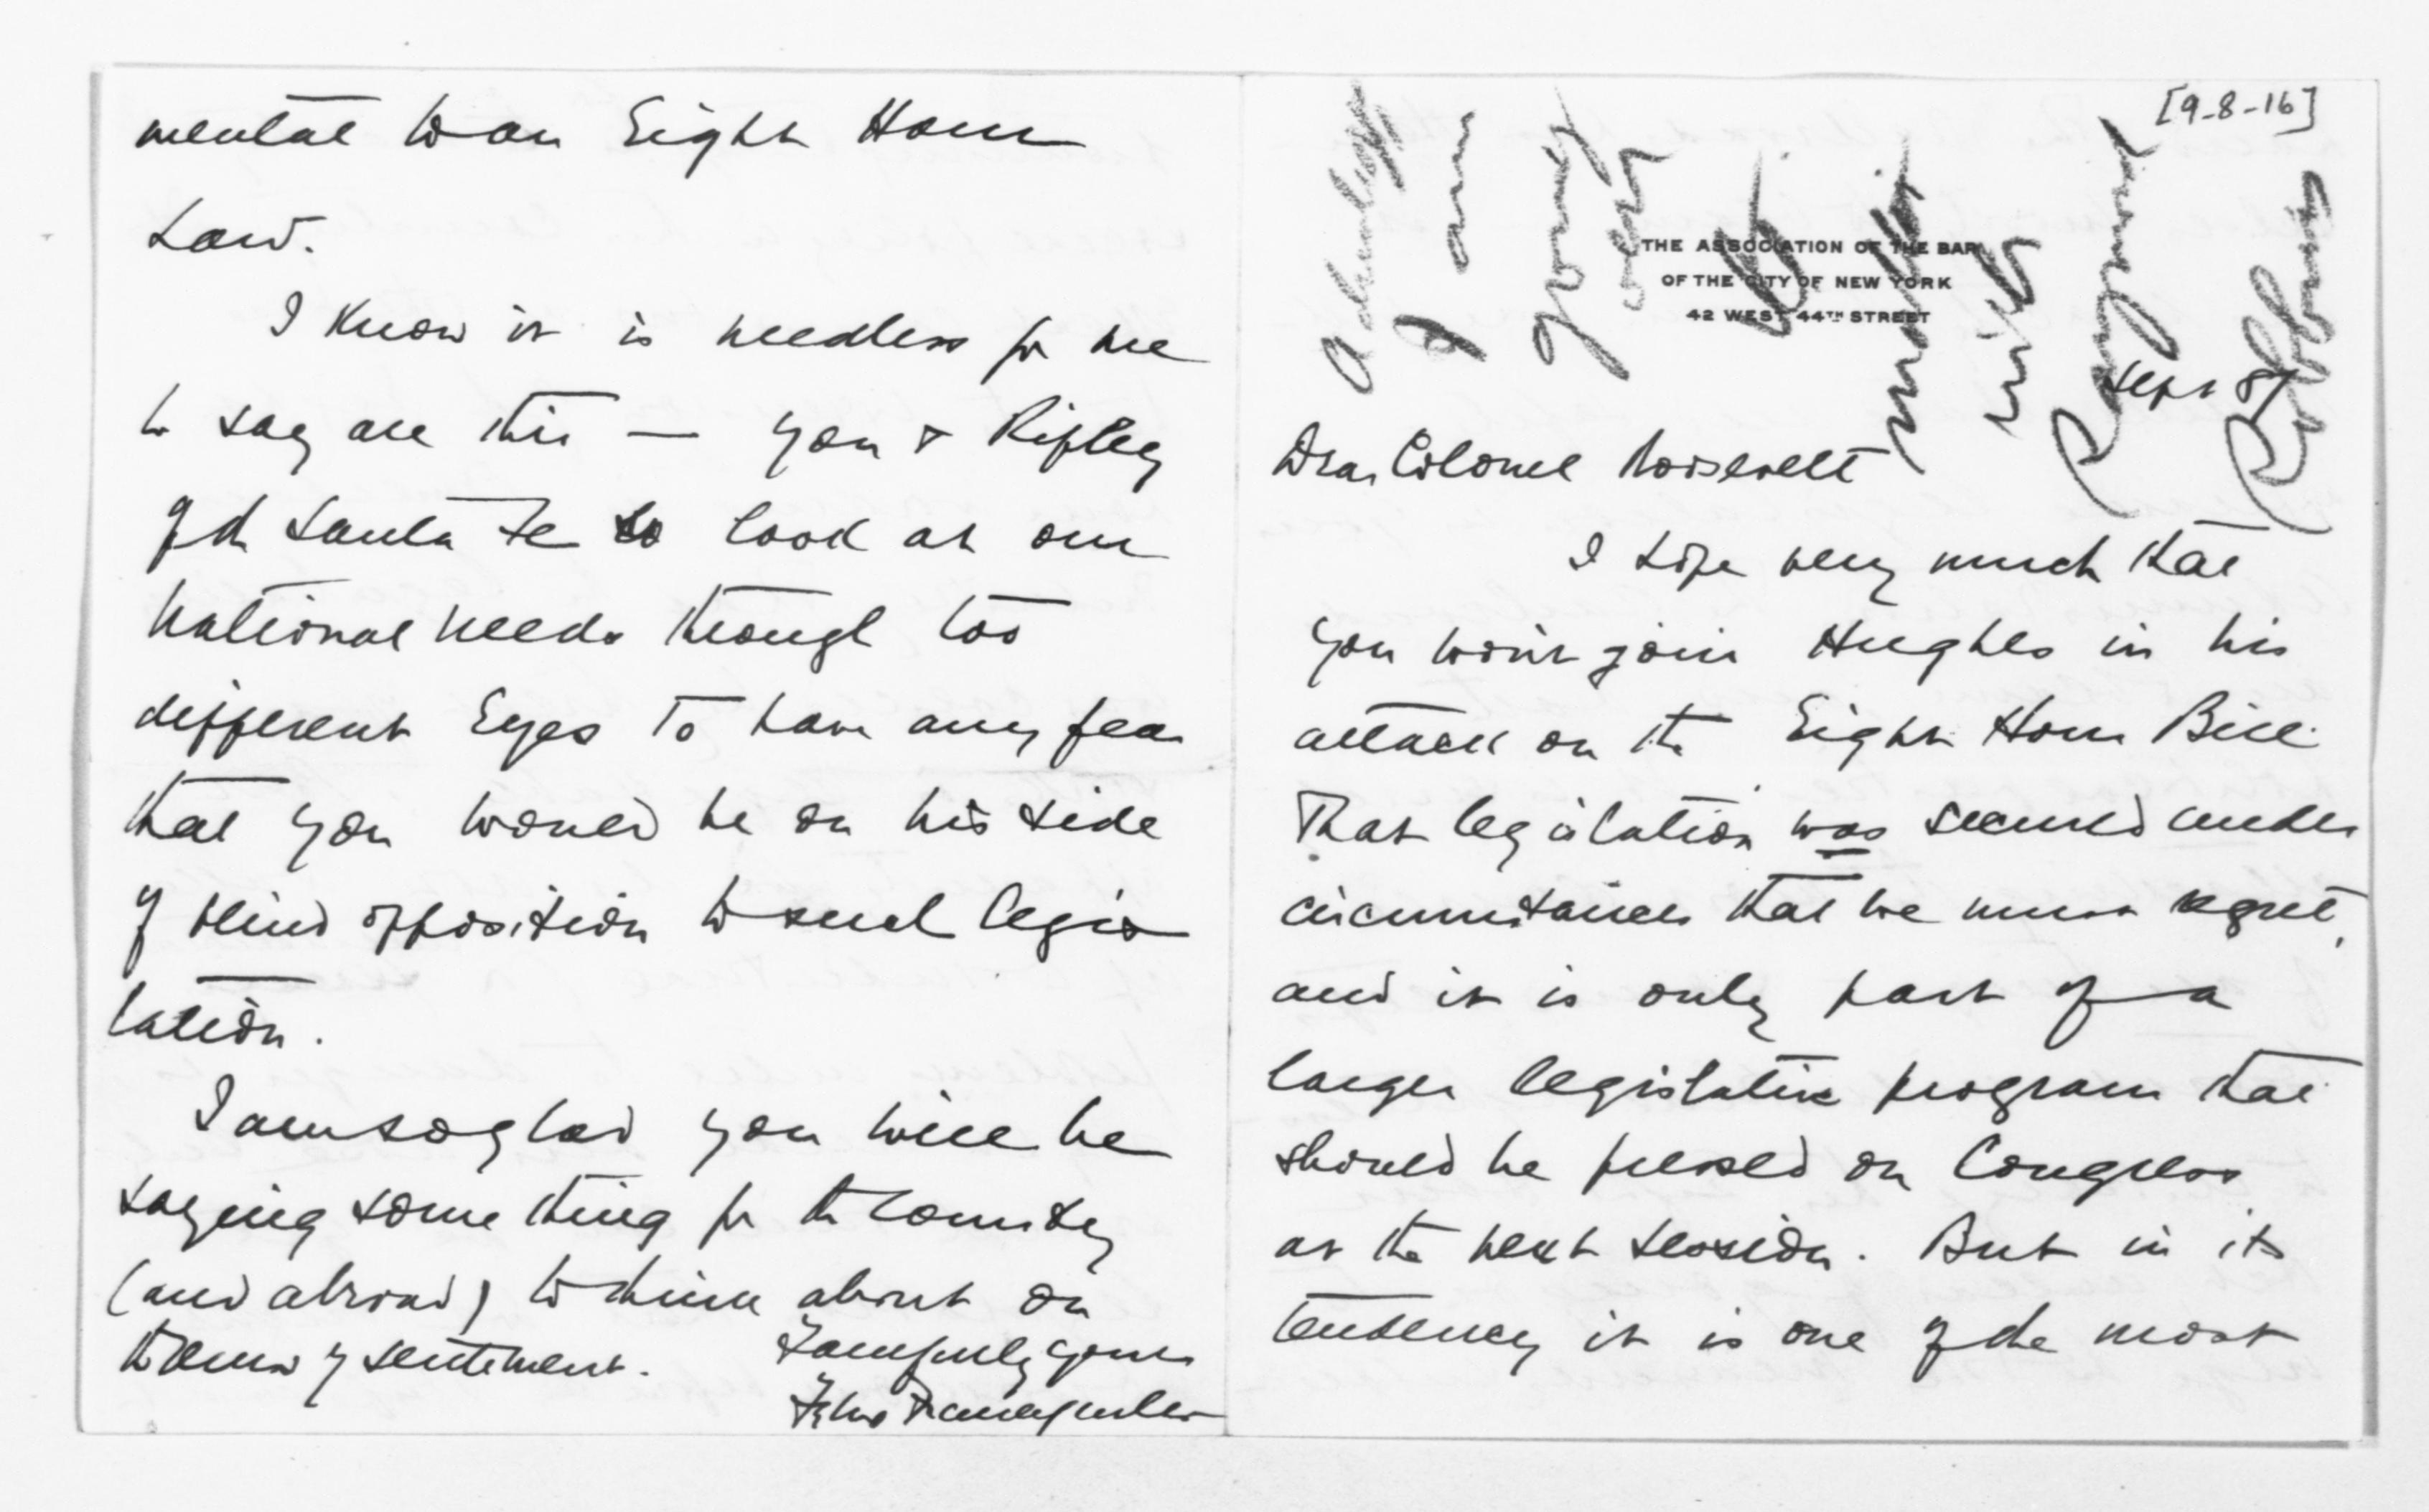 [9-8-16]
Acknowledge
I am
going
over
matter
with
Raymond
Robins
THE ASSOCIATION OF THE BAR
OF THE CITY OF NEW YORK
42 WEST 44TH STREET
Sept 8/
Dear Colonel Roosevelt
I hope very much that
you won't join Hughes in his
attack on the Eight Hour Bill.
That legislation was secured under
circumstances that we must regret,
and it is only part of a
larger legislative program that
should be pressed on Congress
at the next session. But in its
tendency it is one of the most
mental to an Eight Hour
Law.
I know it is needless for me
to say all this — you & Ripley
of the Santa Fe look at our
national needs through too
different eyes to have any fear
that you would be on his side
of blind opposition to such legis
lation.
I am so glad you will be
saying something for the country
(and abroad) to think about on
of sentiment.
Faithfully yours
Felix Frankfurter